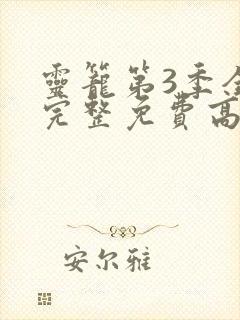 靈籠第3季全
完整免費高
安尔雅